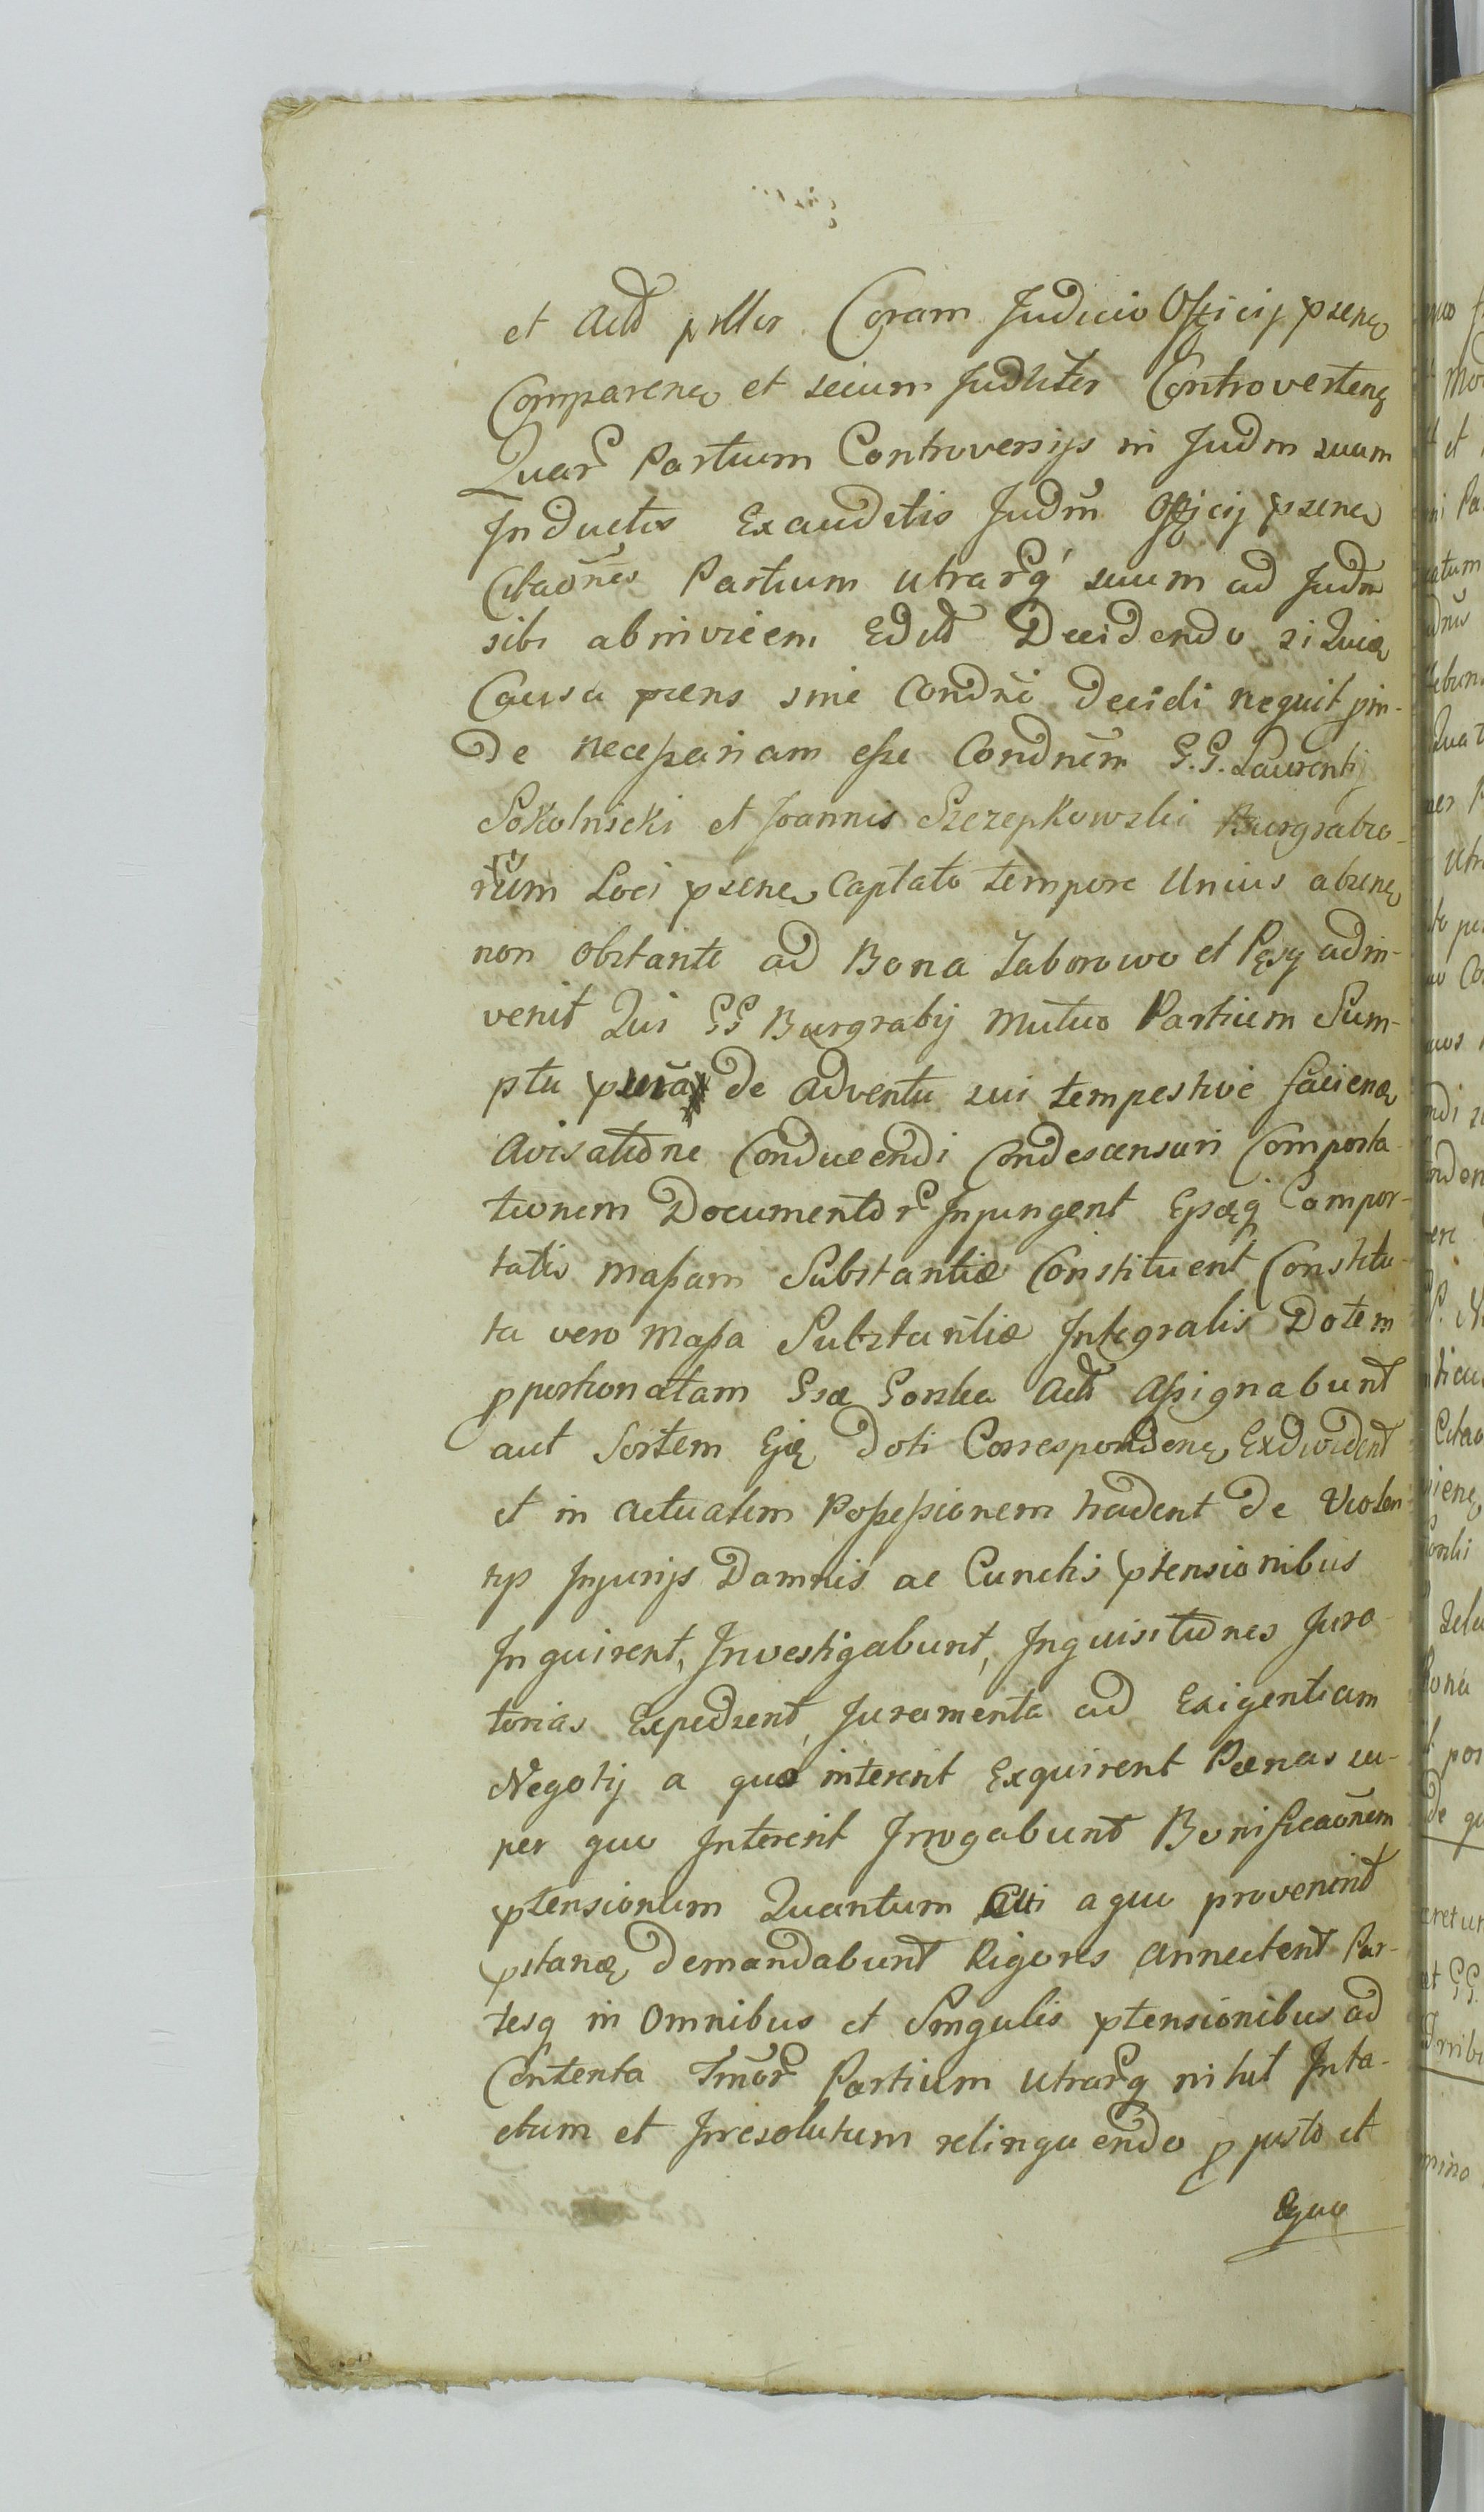 et Actt pttter Coram Judicio Officij psene
Comparene et secum Judliter Controvertene
Quar Partium Controversijs in Judm suum
Inductis Exauditis Judm Officij psene
Citaones Partium utrarq suum ad Judm
sibi ab invicem Edittt Decidendo siquidem
Causa prens sine Condni Decidi nequit pin-
de necessariam esse Condnem G.G. Laurentij
Sokolnicki et Joannis Szczepkowski Burgrabio-
rum Loci psene, Captato tempore Unius absene
non obstante ad Bona Zaborowo et Pęsy adin-
venit Qui GG Burgrabij mutuo Partium Sum-
ptu de adventu sui tempestive faciene
avisatione Conducendi Condescensuri Comporta-
tionem Documentor Injungent Eisq Compor-
tatis massam Substantiæ Constituent Constitu-
ta vero massa Substantiæ Integralis Dotem
pportionatam Gsæ Gorska Actt Assignabunt
aut Sortem Ejq doti Correspondene Exdivident
et in actualem Possessionem tradent de Violen-
tijs Injurijs Damnis ac Cunctis ptensionibus
Inquirent, Investigabunt, Inquisitiones Jura-
torias Expedient, Juramenta ad Exigentiam
Negotij a quo intererit Exquirent Pænas su-
per quo Intererit Irrogabunt Bonificaonem
ptensionum Quantum Cui a quo provenerit
pstane demandabunt Rigores annectent Par-
tesq in Omnibus et Singulis ptensionibus ad
Contenta Tmor Partium utrarq nihil Inta-
ctum et Irresolutum relinquendo p justo et
Æquo